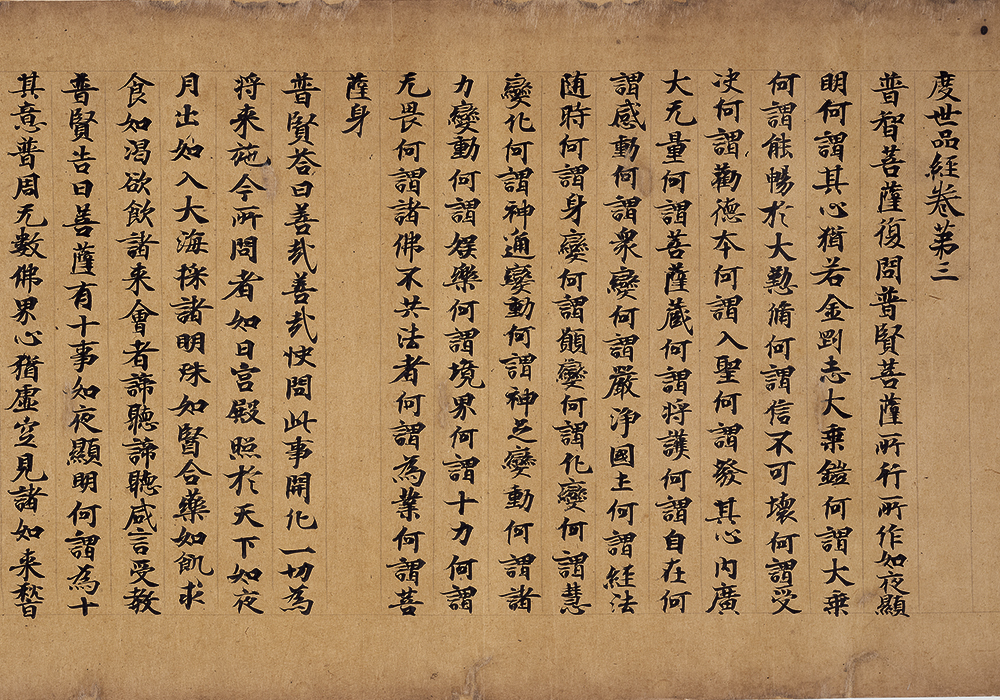 度世品經卷第三
普智菩薩復問普賢菩薩所行所作如夜顯
明何謂其心猶若金剛志大乘鎧何謂大乘
何謂能暢於大懃脩何謂信不可壞何謂受
决何謂勸德本何謂入聖何謂發其心内廣
大无量何謂菩薩藏何謂將護何謂自在何
謂感動何謂衆變何謂嚴淨國土何謂經法
随時何謂身變何謂願變何謂化變何謂慧
變化何謂神通變動何謂神足變動何謂諸
力變動何謂娱樂何謂境界何謂十力何謂
无畏何謂諸佛不共法者何謂為業何謂菩
薩身
普賢荅曰善㢤善㢤快問此事開化一切為
将来施今所問者如日宫殿照於天下如夜
月出如入大海採諸明珠如賢合藥如飢求
食如渴欲飲諸来會者諦聽諦聽咸言受教
普賢告曰菩薩有十事如夜顯明何謂為十
其意普周无數佛界心猶虚空見諸如来慗